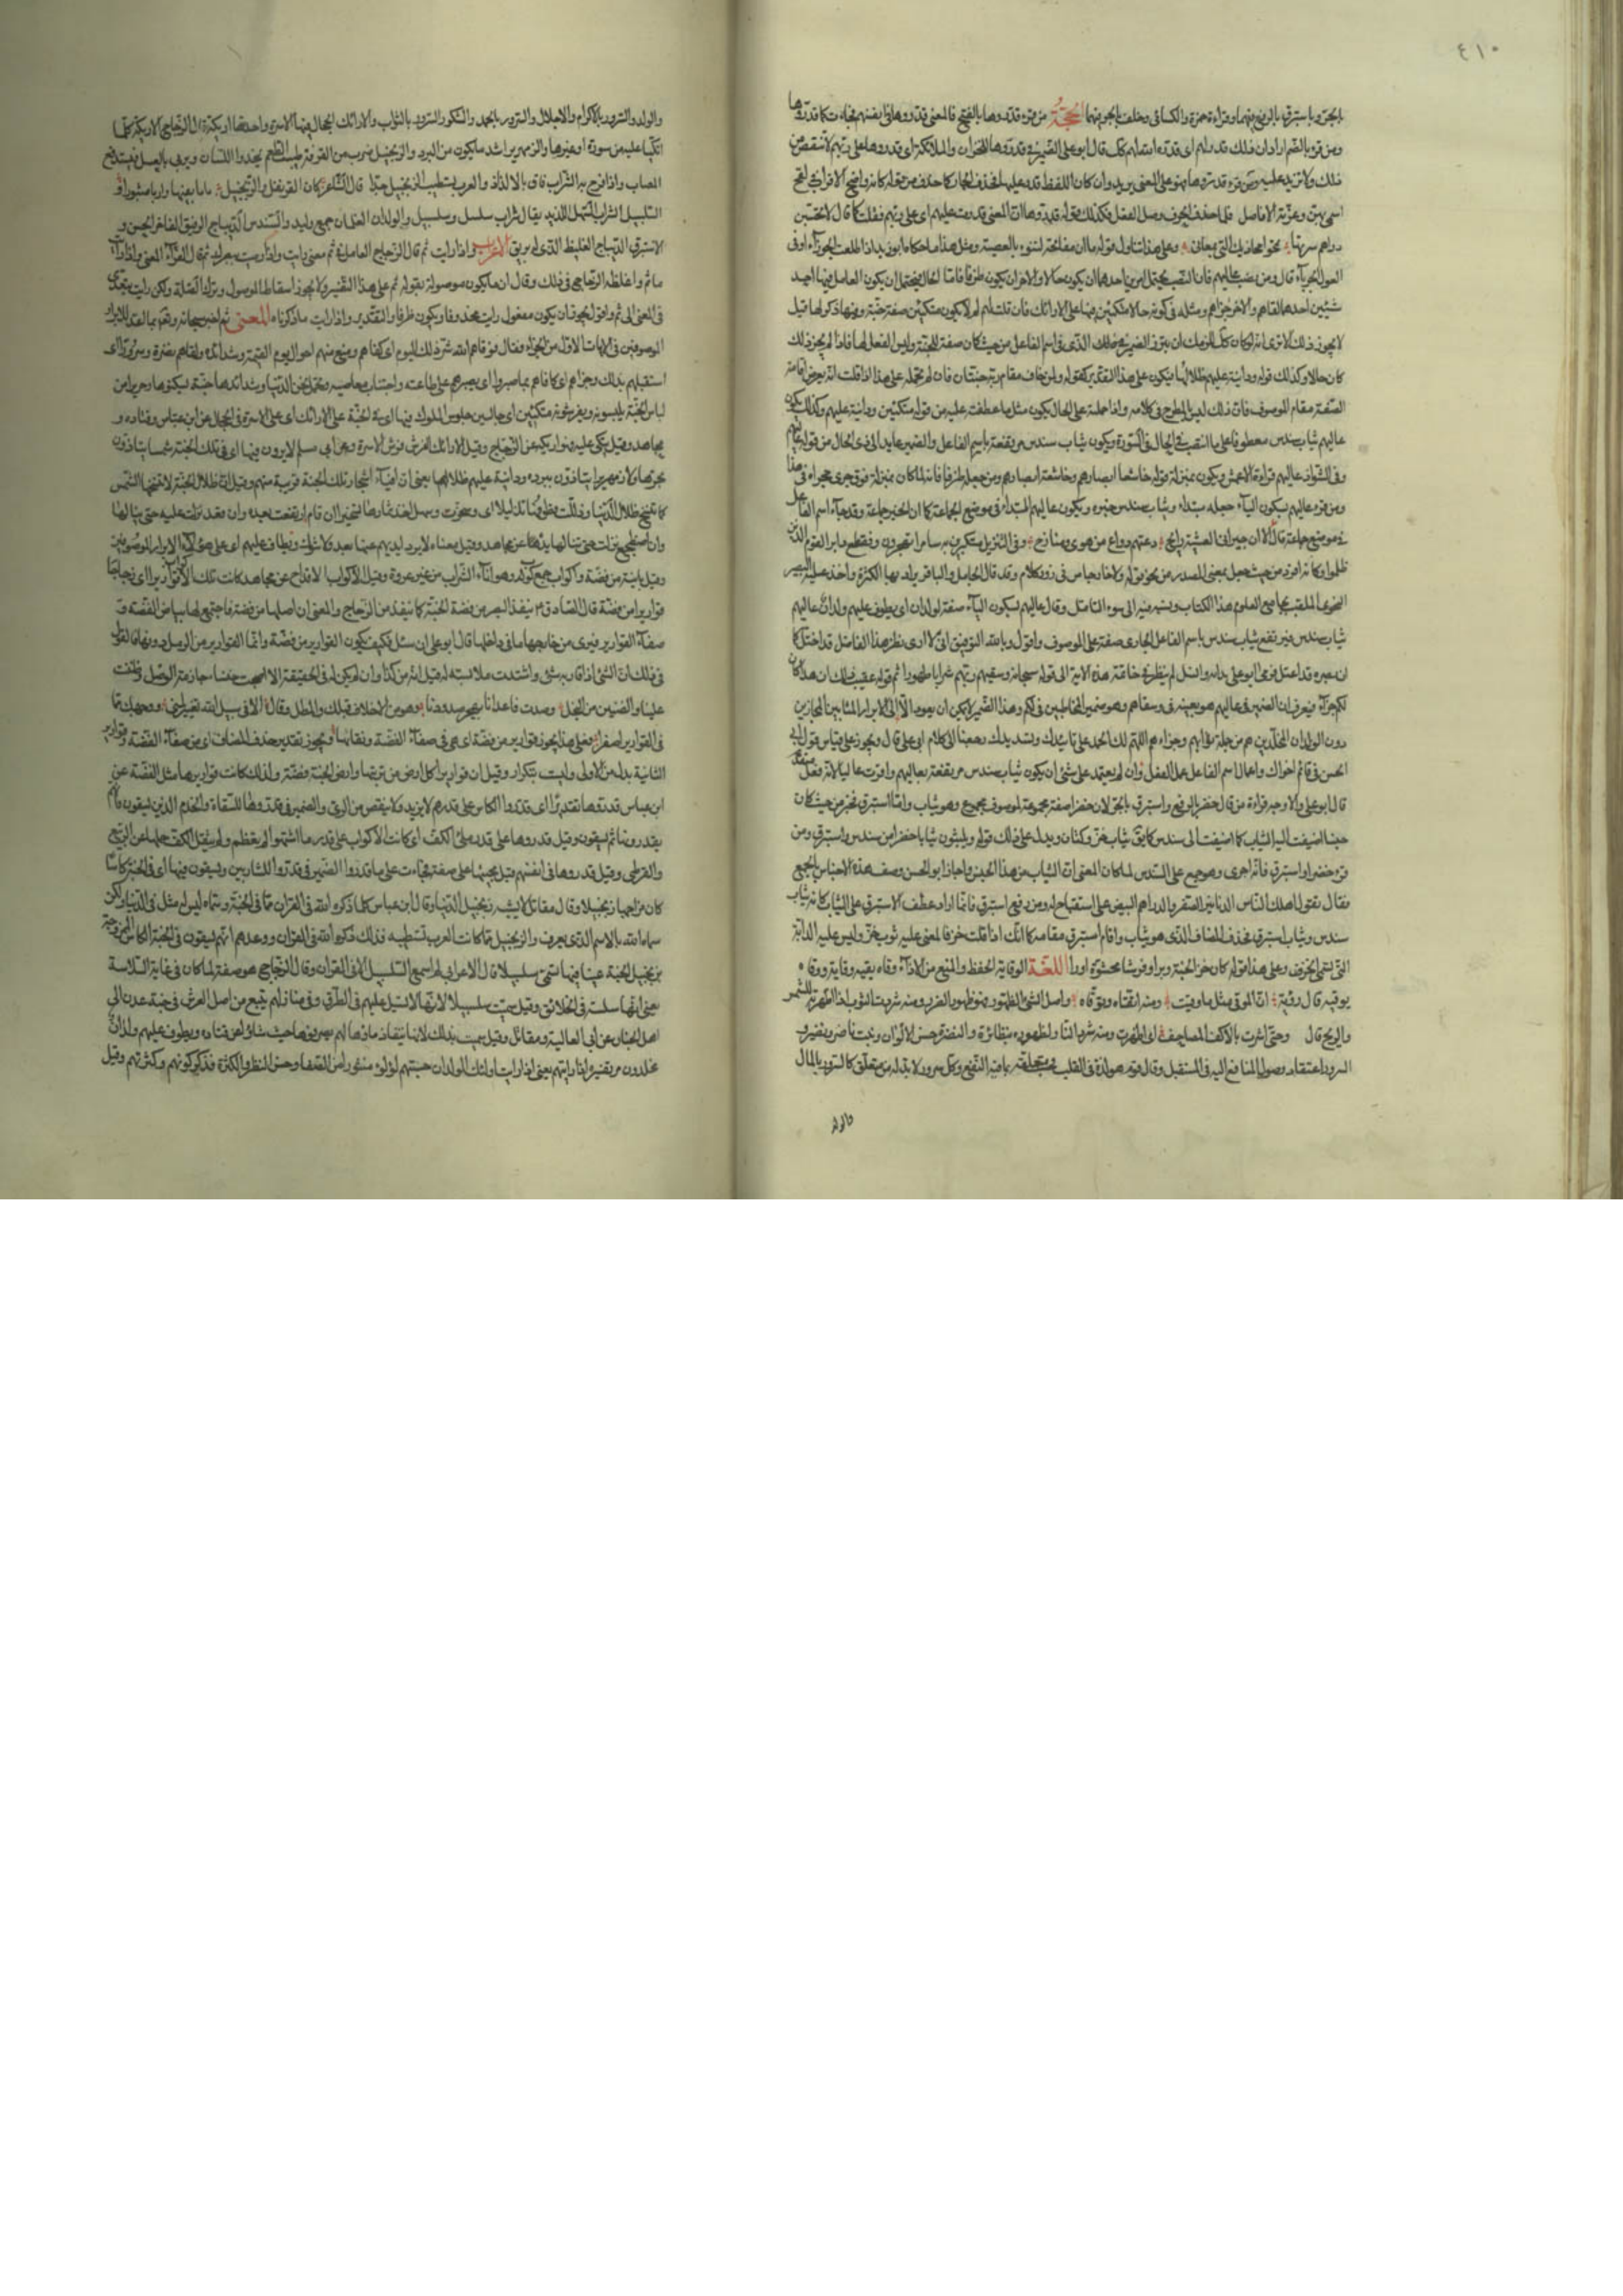 ٤١٠
بالجر وباستبرق بالرفع فيهما وقراءة حمزة والكسائى وخلف بالجر فيهما الحجة من قرء قدروها بالفتح فالمعنى قدروها فى انفسهم فجاءت كما قدروها
ومن قرء بالضم اراد ان ذلك قدر لهم اى قدره الله لهم كذلك قال ابو على الضمير فى قدروها للخزان والملائكة اى قدروها على ربهم لا ينقص من
ذلك ولا تزيد عليه ومن قرء قدروها فهو على المعنى يريد وان كان اللفظ قدروا عليها فحذف الجار كما حذف من قوله كانه واضح الاقراب فى لقح
اسمى بهن وعزته الاناصل فلما حذف الحرف وصل الفعل فكذلك قوله قدروها ان المعنى قدرت عليهم اى على ربهم فقلب كما قال لا تحسبن
دراهم سرقتها وعلى هذا يتأول قوله ما ان مفاتحه لتنوء بالعصبة ومثل هذا ما حكاه ابو زيد اذا طلعت الجوزاء اوفى
العود الحرباء قال ومن نصب عاليهم فان النصب يحتمل امرين احدهما ان يكون حالا والاخر ان يكون ظرفا فاما الحال فيحتمل ان يكون العامل فيها احد
شيئين احدهما لقاهم والاخر جزاهم ومثله فى كونه حالا متكئين فيها على الارائك فان قلت لم لا يكون متكئين صفة جنة وفيها ذكر لها قيل
لا يجوز ذلك الا ترى انه لو كان كذلك للزمك ان تبرز الضمير من حيث كان صفة للجنة وليس الفعل لها فاذا لم يجز ذلك
كان حالا وكذلك قوله ودانية عليهم ظلالها
الصفة مقام الموصوف فان ذلك ليس بالمطرح فى كلامه واذا حملته على الحال يكون مثل ما عطفت عليه من قوله متكئين ودانية عليهم وكذلك يكون
عاليهم ثياب سندس معطوفا على ما انتصب على الحال فى السورة ويكون ثياب سندس مرتفعة باسم الفاعل والضمير عايد الى ذى الحال من قوله
وفى الشواذ عاليهم قراءة الاعمش ويكون بمنزلة قوله خاشعا ابصارهم وخاشعة ابصارهم ومن جعله ظرفا فانه لما كان بمنزلة فوق جرى مجراه فى هذا
ومن قرء عاليهم بسكون الياء جعله مبتداء وثياب سندس خبره ويكون عاليهم المبتداء فى موضع الجماعة كما ان الخبر جماعة وقد جاء اسم الفاعل
فى موضع جماعة قال الا ان جيرانى العشية رايح دعتهم دواع من هوى ومنادح وفى التنزيل مستكبرين به سامرا تهجرون وفقطع دابر القوم الذين
ظلموا وكانه افرد من حيث جعل بمعنى المصدر من نحو قوله ولا خارجا من فى زور كلام وقد قال الجامل والباقر يراد بهما الكثرة واخذ على البصير
النحوى الملقب بجامع العلوم هذا الكتاب ونسبه فيه الى سوء التأمل وقال عاليهم بسكون الياء صفة لولدان اى يطوف عليهم ولدان عاليهم
ثياب سندس فيرتفع ثياب سندس باسم الفاعل الجارى صفة على الموصوف واقول وبالله التوفيق انى لا ارى نظر هذا الفاضل قد اختل كما
ثم قوله عقيب ذلك ان هذا كان
لكم جزاء فيعرف ان الضمير فى عاليهم هو بعينه فى وسقاهم وهو ضمير المخاطبين فى لكم وهذا الضمير لا يمكن ان يعود الا الى الابرار المثابين المجازين
دون الولدان المخلدين هم من جملة ثوابهم وجزاءهم اللهم لك الحمد على تاييدك وتسديدك رجعنا الى كلام ابى على قال ويجوز على قياس قول ابى
الحسن فى قائم اخواك واعمال اسم الفاعل عمل الفعل وان لم يعتمد على شئ ان يكون ثياب سندس مرتفعة بعاليهم وافردت عاليا لانه فعل متقدم
قال ابو على والاوجه قراءة من قال خضر بالرفع واستبرق بالجر لان خضرا صفة مجموعة لموصوف مجموع وهو ثياب واما استبرق فجر من حيث كان
جنسا اضيفت اليه الثياب كما اضيفت الى سندس كما يق ثياب خز وكتان ويدل على ذلك قوله ويلبسون ثيابا خضرا من سندس واستبرق ومن
قرء خضر واستبرق فانه اجرى وهو جمع على السندس لما كان المعنى ان الثياب من هذا الجنس واجاز ابو الحسن وصف هذه الاجناس بالجمع
فقال تقول اهلك الناس الدنانير الصفر والدراهم البيض على استقباح له ومن رفع استبرق فانما اراد عطف الاستبرق على الثياب كانه ثياب
سندس وثياب استبرق فحذف المضاف الذى هو ثياب واقام استبرق مقامه كما انك اذا قلت خز فالمعنى عليه ثوب خز وليس عليه الدابة
اللغة الوقاية الحفظ والمنع من الاذى وقاه يقيه وقاية ووقاه
يوقيه قال رؤبة ان الموقى مثل ما وقيت ومنه اتقاه وتوقاه واصل الشر الظهور فهو ظهور الضرر ومنه شررت الثوب اذا اظهرته للشمس
والريح قال وحتى اشرت بالاكف المصاحف اى اظهرت ومنه شرر النار لظهوره بتطائره والنضرة حسن الالوان ونبت ناضر ونضير
السرور اعتقاد وصول المنافع اليه فى المستقبل وقال قوم هو لذة فى القلب بما فيه النفع وكل سرور لا بد له من متعلق كالسرور بالمال
والولد
والولد والسرور بالاكرام والاجلال والسرور بالحمد والشكر والسرور بالثواب والارائك الحجال فيها الاسرة واحدتها اريكة قال الزجاج الاريكة كلما
اتكئ عليه من مسورة او غيرها والزمهرير اشد ما يكون من البرد والزنجبيل ضرب من القرفة طيب الطعم يحذو اللسان ويربى بالعسل يستدفع به
المضار واذا مزج به الشراب فاق بالالذاذ والعرب يستطيب الزنجبيل جدا قال الشاعر كان القرنفل والزنجبيل باتا بفيها واريا مشورا
السلسبيل الشراب السهل اللذيذ يقال شراب سلسل وسلسبيل والولدان الغلمان جمع وليد والسندس الديباج الرقيق الفاخر الحسن و
الاستبرق الديباج الغليظ الذى له بريق الاعراب واذا رايت ثم قال الزجاج العامل فى ثم معنى رايت واذا رايت ببصرك ثم قال الفراء المعنى واذا رايت
ما ثم وغلطه الزجاج فى ذلك وقال ان ما يكون موصولة بقوله ثم على هذا التفسير ولا يجوز اسقاط الموصول وترك الصلة ولكن رايت يتعدى
فى المعنى الى ثم واقول يجوز ان يكون مفعول رايت محذوفا ويكون ثم ظرفا والتقدير واذا رايت ما ذكرناه المعنى ثم اخبر سبحانه
الموصوفين فى الايات الاول من الجزاء فقال فوقاهم الله شر ذلك اليوم اى كفاهم ومنع منهم اهوال يوم القيمة وشدائده ولقاهم نضرة وسرورا اى
استقبلهم بذلك وجزاهم اى كافاهم بما صبروا اى بصبرهم على طاعته واجتناب معاصيه وتحمل محن الدنيا وشدائدها جنة يسكنونها وحريرا من
لباس الجنة يلبسونه ويفرشونه متكئين اى جالسين جلوس الملوك فيها اى فى الجنة على الارائك اى على الاسرة فى الحجال عن ابن عباس وقتادة و
مجاهد وقيل كلما يتكى عليه فهو اريكة عن الزجاج وقيل الارائك الفرش فوق الاسرة وعن ابى مسلم لا يرون فيها اى فى تلك الجنة شمسا يتاذون
بحرها ولا زمهريرا يتاذون ببرده ودانية عليهم ظلالها يعنى ان افياء اشجار تلك الجنة قريبة منهم وقيل ان ظلال الجنة لا تنسخها الشمس
كما تنسخ ظلال الدنيا وذللت قطوفها تذليلا اى وسخرت وسهل اخذ ثمارها تسخيرا ان قام ارتفعت بقدره وان قعد نزلت عليه حتى ينالها
وان اضطجع نزلت حتى ينالها بيده عن مجاهد وقيل معناه لا يرد ايديهم عنها بعد ولا شوك ويطاف عليهم اى على هؤلاء الابرار الموصوفين
بانية من فضة واكواب جمع كوب وهو اناء الشراب من غير عروة وقيل الاكواب الاقداح عن مجاهد كانت تلك الاكواب قواريرا اى زجاجا
قواريرا من فضة قال الصادق ينفذ البصر من فضة الجنة كما ينفذ من الزجاج والمعنى ان اصلها من فضة فاجتمع لها بياض الفضة و
صفاء القوارير فيرى من خارجها ما فى داخلها قال ابو على ان سئل فكيف يكون القوارير من فضة وانما القوارير من الرمل دونها فالقول
فى ذلك ان الشئ اذا قاربه شئ واشتدت ملابسته له قيل انه من كذا وان لم يكن له فى الحقيقة الا اصبحت خنساء جاذمة الوصل وضنت
علينا والضنين من البخل وصدت فاعدانا بهجر صدودها وهن من الاخلاف قبلك والمطل وقال الا فى سبيل الله تغيير لمتى ووجهك مما
فى القوارير اصفر فعلى هذا يجوز قوارير من فضة اى هى فى صفاء الفضة ونقائها ويجوز تقدير حذف المضاف اى من صفاء الفضة وقوارير
الثانية بدل من الاولى وليست بتكرار وقيل ان قوارير كل ارض من تربتها وارض الجنة فضة ولذلك كانت قواريرها مثل الفضة عن
ابن عباس قدروها تقديرا اى قدروا الكاس على قدر ريهم لا يزيد ولا ينقص من الرى والضمير فى قدروها للسقاة والخدم الذين يسقون فانهم
يقدرونها ثم يسقون وقيل قدروها على قدر ملئ الكف اى كانت الاكواب على قدر ما اشتهوا لم يعظم ولم يثقل الكف حملها عن الربيع
والقرظى وقيل قدروها فى انفسهم قبل مجيئها على صفة فجاءت على ما قدروا والضمير فى قدروا للشاربين ويسقون فيها اى فى الجنة كاسا
كان مزاجها زنجبيلا وقال مقاتل لا يشبه زنجبيل الدنيا وقال ابن عباس كلما ذكره الله فى القران مما فى الجنة وسماه ليس له مثل فى الدنيا ولكن
سماه الله بالاسم الذى يعرف والزنجبيل مما كانت العرب تستطيبه فلذلك ذكره الله فى القران ووعدهم انهم يسقون فى الجنة الكاس الممزوجة
بزنجبيل الجنة عينا فيها تسمى سلسبيلا قال ابن الاعرابى لم اسمع السلسبيل الا فى القران وقال الزجاج هو صفة لما كان فى غاية السلاسة
يعنى انها سلسلة فى الحلق وقيل سميت سلسبيلا لانها تسيل عليهم فى الطرق وفى منازلهم ينبع من اصل العرش من جنة عدن الى
اهل الجنان عن ابى العالية ومقاتل وقيل سميت بذلك لانها ينقاد ماؤها لهم يصرفونها حيث شاؤا عن قتادة ويطوف عليهم ولدان
مخلدون مر تفسيره اذا رايتهم يعنى اذا رايت اولئك الولدان حسبتهم لؤلؤا منثورا من الصفاء وحسن المنظر والكثرة فذكر لونهم وكثرتهم وقيل